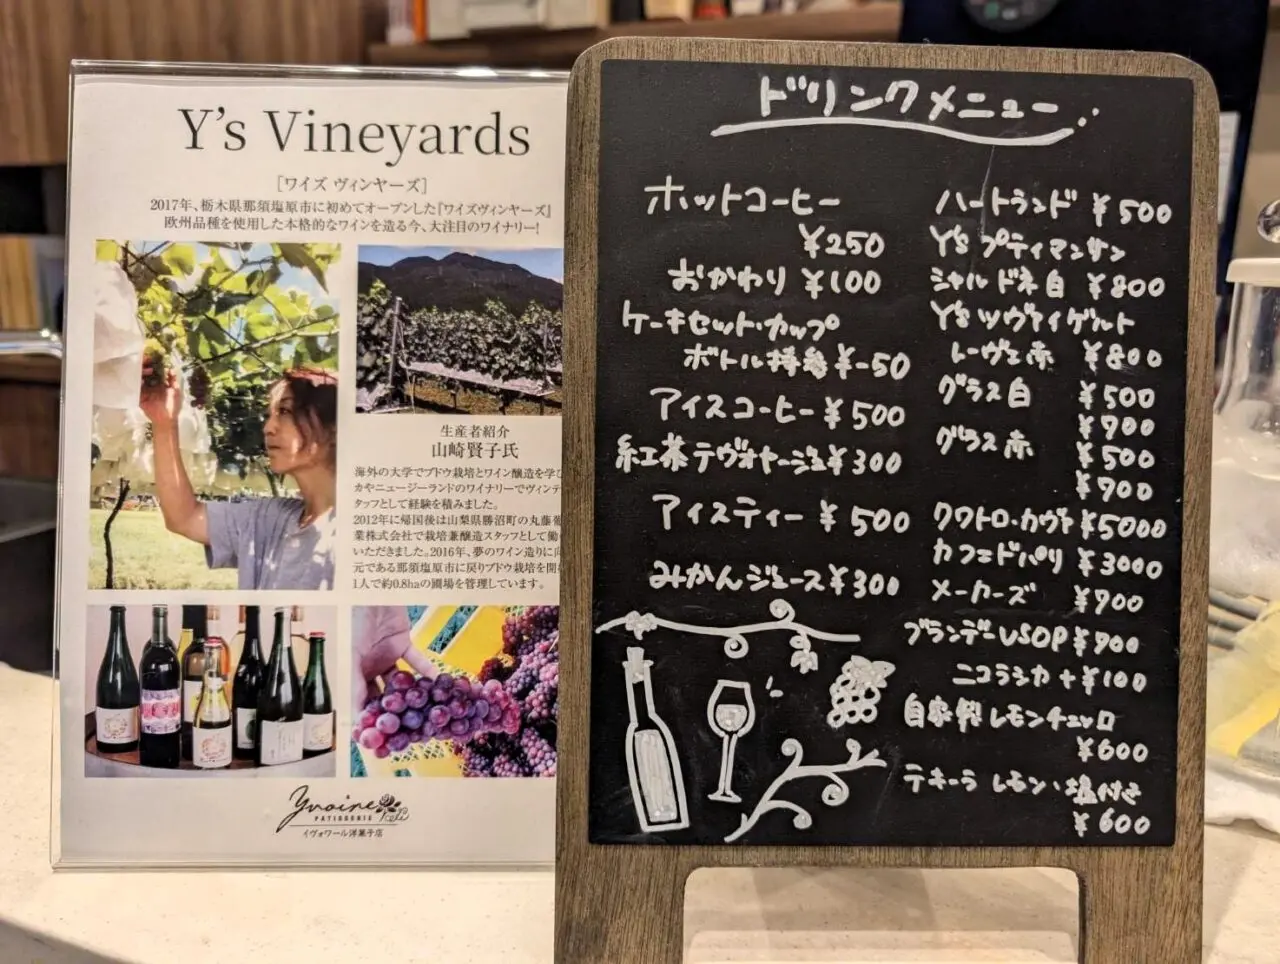 Y's Vineyards
［ワイズ ヴィンヤーズ］
2017年、栃木県那須塩原市に初めてオープンした『ワイズヴィンヤーズ』
欧州品種を使用した本格的なワインを造る今、大注目のワイナリー!
生産者紹介
山崎賢子氏
海外の大学でブドウ栽培とワイン醸造を学び
カやニュージーランドのワイナリーでヴィンテ
スタッフとして経験を積みました。
2012年に帰国後は山梨県勝沼町の丸藤葡
業株式会社で栽培兼醸造スタッフとして働
いただきました。2016年、夢のワイン造りに向
元である那須塩原市に戻りブドウ栽培を開
1人で約0.8haの圃場を管理しています。
Yvoire
PATISSERIE
イヴォワール洋菓子店
ドリンクメニュー
ホットコーヒー
¥250
おかわり ¥100
ケーキセット・カップ
ボトル持参 ¥-50
アイスコーヒー ¥500
紅茶テヴォヤージュ ¥300
アイスティー ¥500
みかんジュース ¥300
ハートランド ¥500
Y's プティマンサン
シャルドネ白 ¥800
Y's ツヴァイゲルト
レーヴェ赤 ¥800
グラス白 ¥500
¥900
グラス赤 ¥500
¥900
クワトロ・カヴァ ¥5000
カフェドパリ ¥3000
メーカーズ ¥900
ブランデーVSOP ¥900
ニコラシカ +¥100
自家製レモンチェッロ
¥600
テキーラ レモン・塩付き
¥600